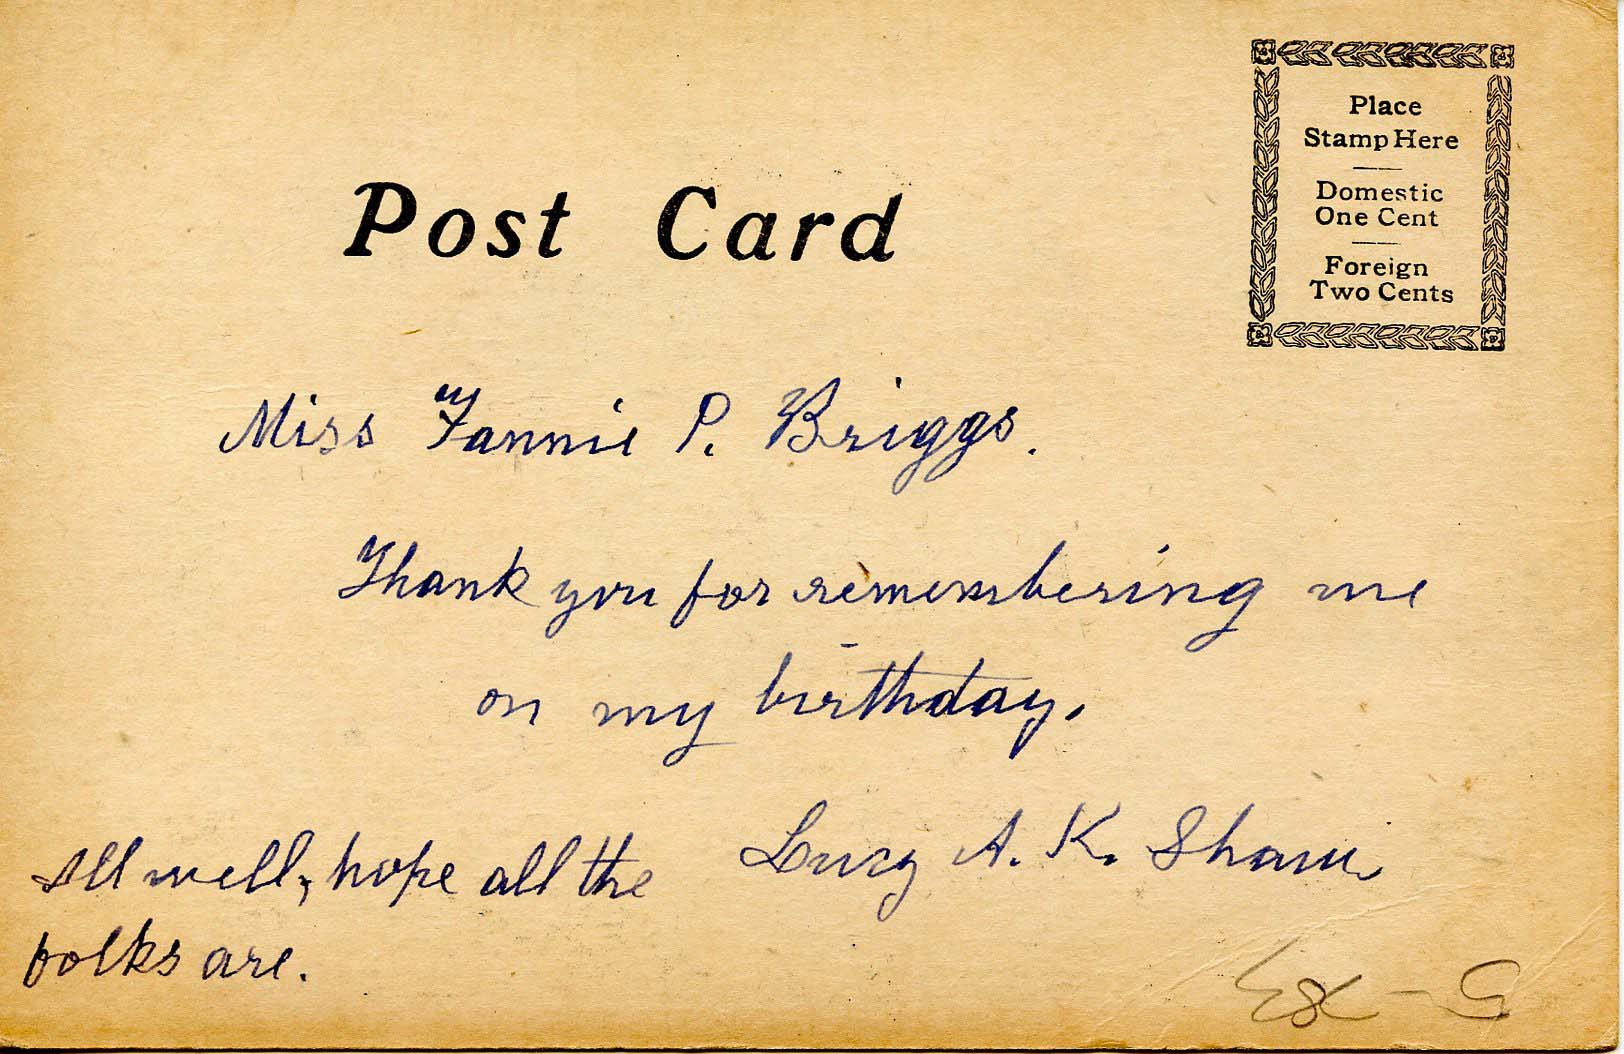 Post Card
Place
Stamp Here
Domestic
One Cent
Foreign
Two Cents
Miss Fannie P. Briggs.
Thank you for remembering me
on my birthday.
Lucy A. K. Shaw.
All well, hope all the
folks are.